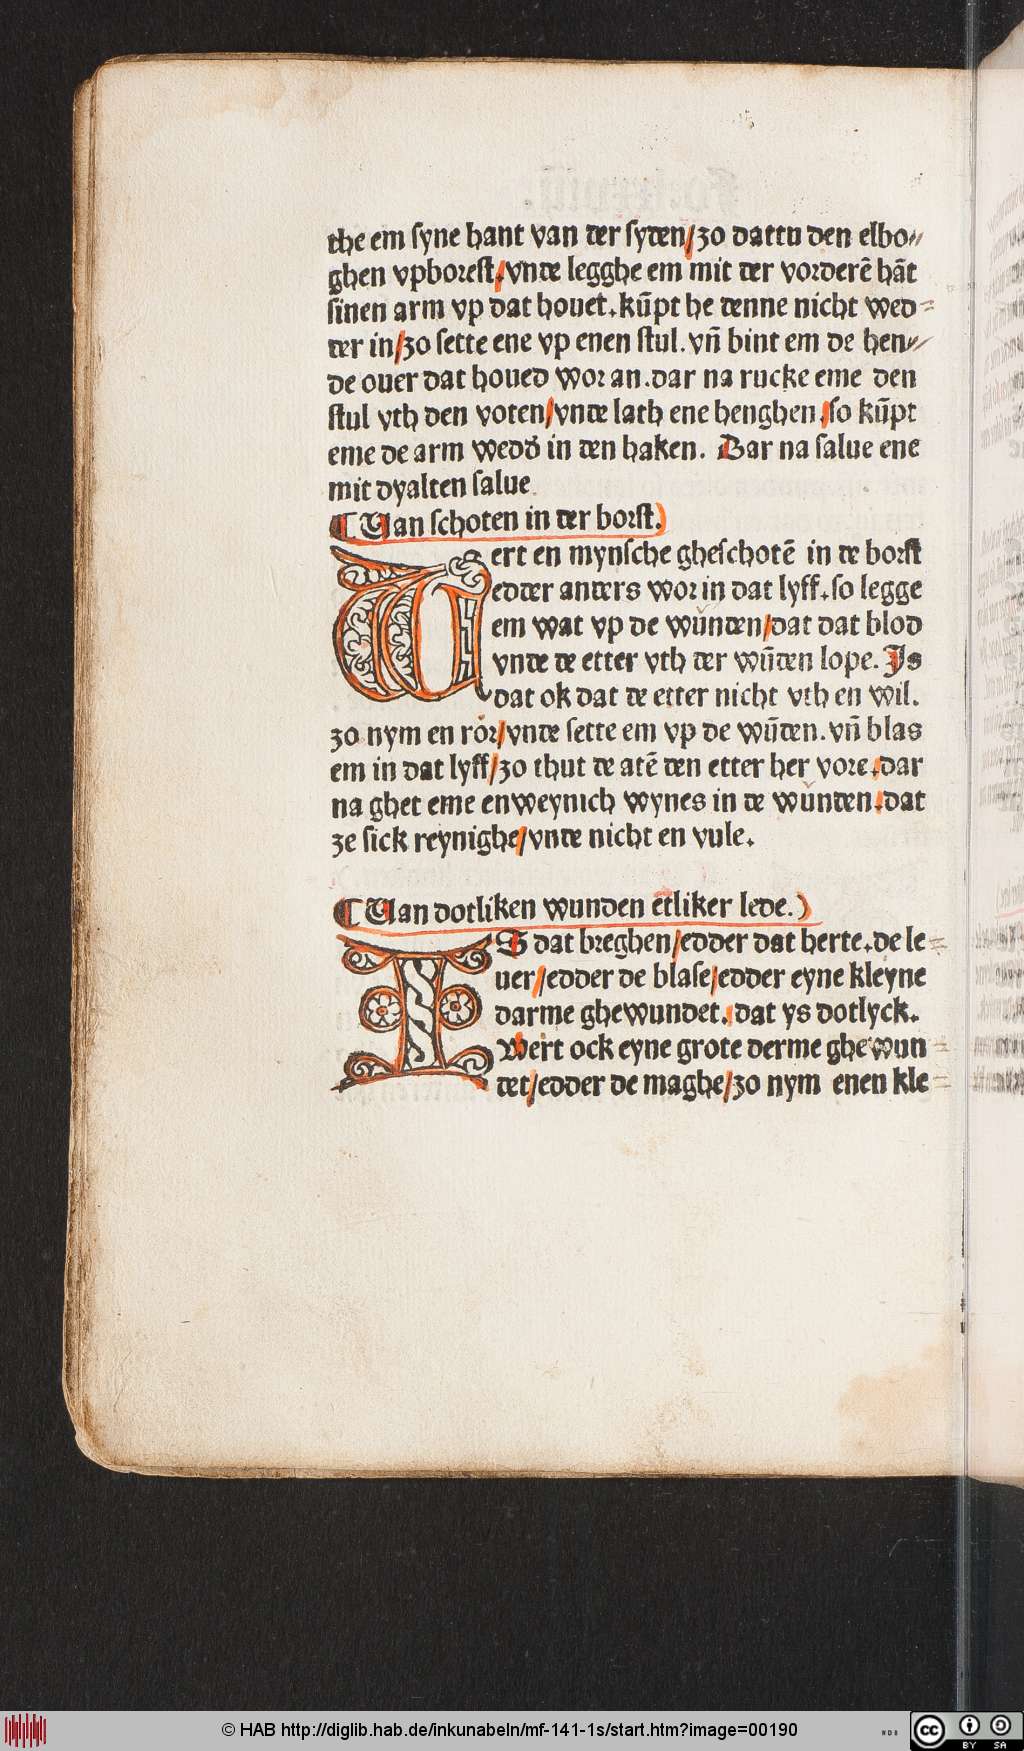 the em syne hant van der syden/zo dattu den elbo⸗
ghen vpborest/vnde legghe em mit der vorderē hāt
sinen arm vp dat houet. kūpt he denne nicht wed⸗
der in/zo sette ene vp enen stul. vn̄ bint em de hen⸗
de ouer dat houed wor an. dar na rucke eme den
stul vth den voten/vnde lath ene henghen/so kūpt
eme de arm wedd' in den haken. Dar na salue ene
mit dyalten salue
¶ Van schoten in der borst.
Wert en mynsche gheschotē in de borst
edder anders wor in dat lyff. so legge
em wat vp de wūnden/dat dat blod
vnde de etter vth der wūden lope. Is
dat ok dat de etter nicht vth en wil.
zo nym en rör/vnde sette em vp de wūden. vn̄ blas
em in dat lyff/zo thut de atē den etter her vore. dar
na ghet eme enweynich wynes in de wūnden. dat
ze sick reynighe/vnde nicht en vule.
¶ Van dotliken wunden etliker lede.
IS dat breghen/edder dat herte. de le⸗
uer/edder de blase/edder eyne kleyne
darme ghewundet. dat ys dotlyck.
Wert ock eyne grote derme ghewun⸗
det/edder de maghe/zo nym enen kle⸗
© HAB http://diglib.hab.de/inkunabeln/mf-141-1s/start.htm?image=00190
WDB
cc BY SA